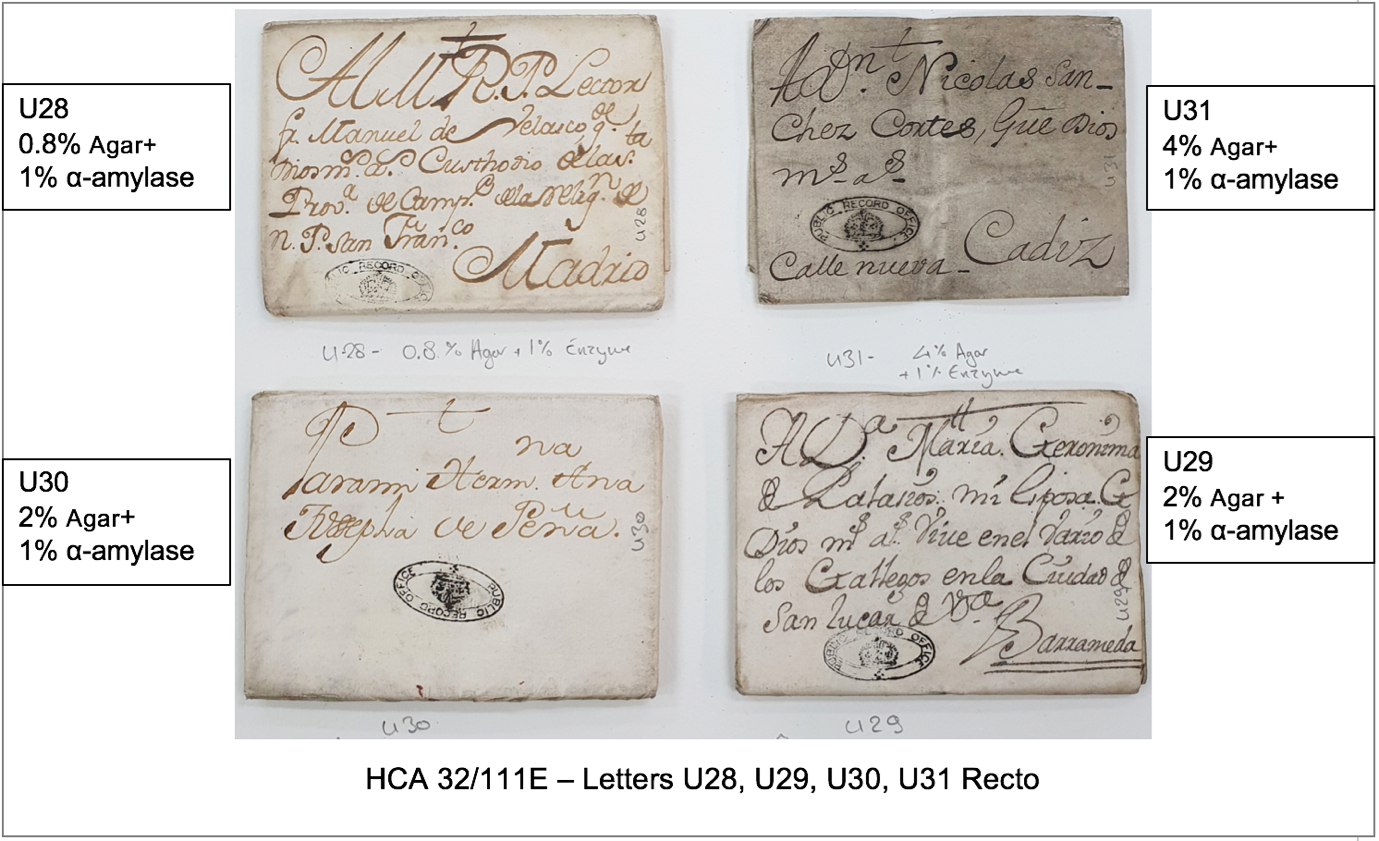 U28
0.8% Agar+
1% α-amylase
Al M.R.P. Lector
fr. Manuel de Velasco q. de
Dios m. a. Custhodio de las ta
Prov.a de Camp.e de la Relig.n de
n. P. San Fran.co
Madrid
U28
PUBLIC RECORD OFFICE
U28 - 0.8% Agar + 1% Enzyme
U31
4% Agar+
1% α-amylase
A Dn. Nicolas San-
chez Cortes, Gue Dios
ms as
U31
PUBLIC RECORD OFFICE
Calle nueva - Cadiz
U31 - 4% Agar
+ 1% Enzyme
U30
2% Agar+
1% α-amylase
na
Para mi Herm. Ana
de Peña.
U30
PUBLIC RECORD OFFICE
U30
U29
2% Agar +
1% α-amylase
A Da. Maria Geronima
mi Esposa. G
Dios ms as. Vive en el Varrio de
los Gallegos en la Ciudad de
San Lucar de Va.
Barrameda
U29
PUBLIC RECORD OFFICE
U29
HCA 32/111E – Letters U28, U29, U30, U31 Recto